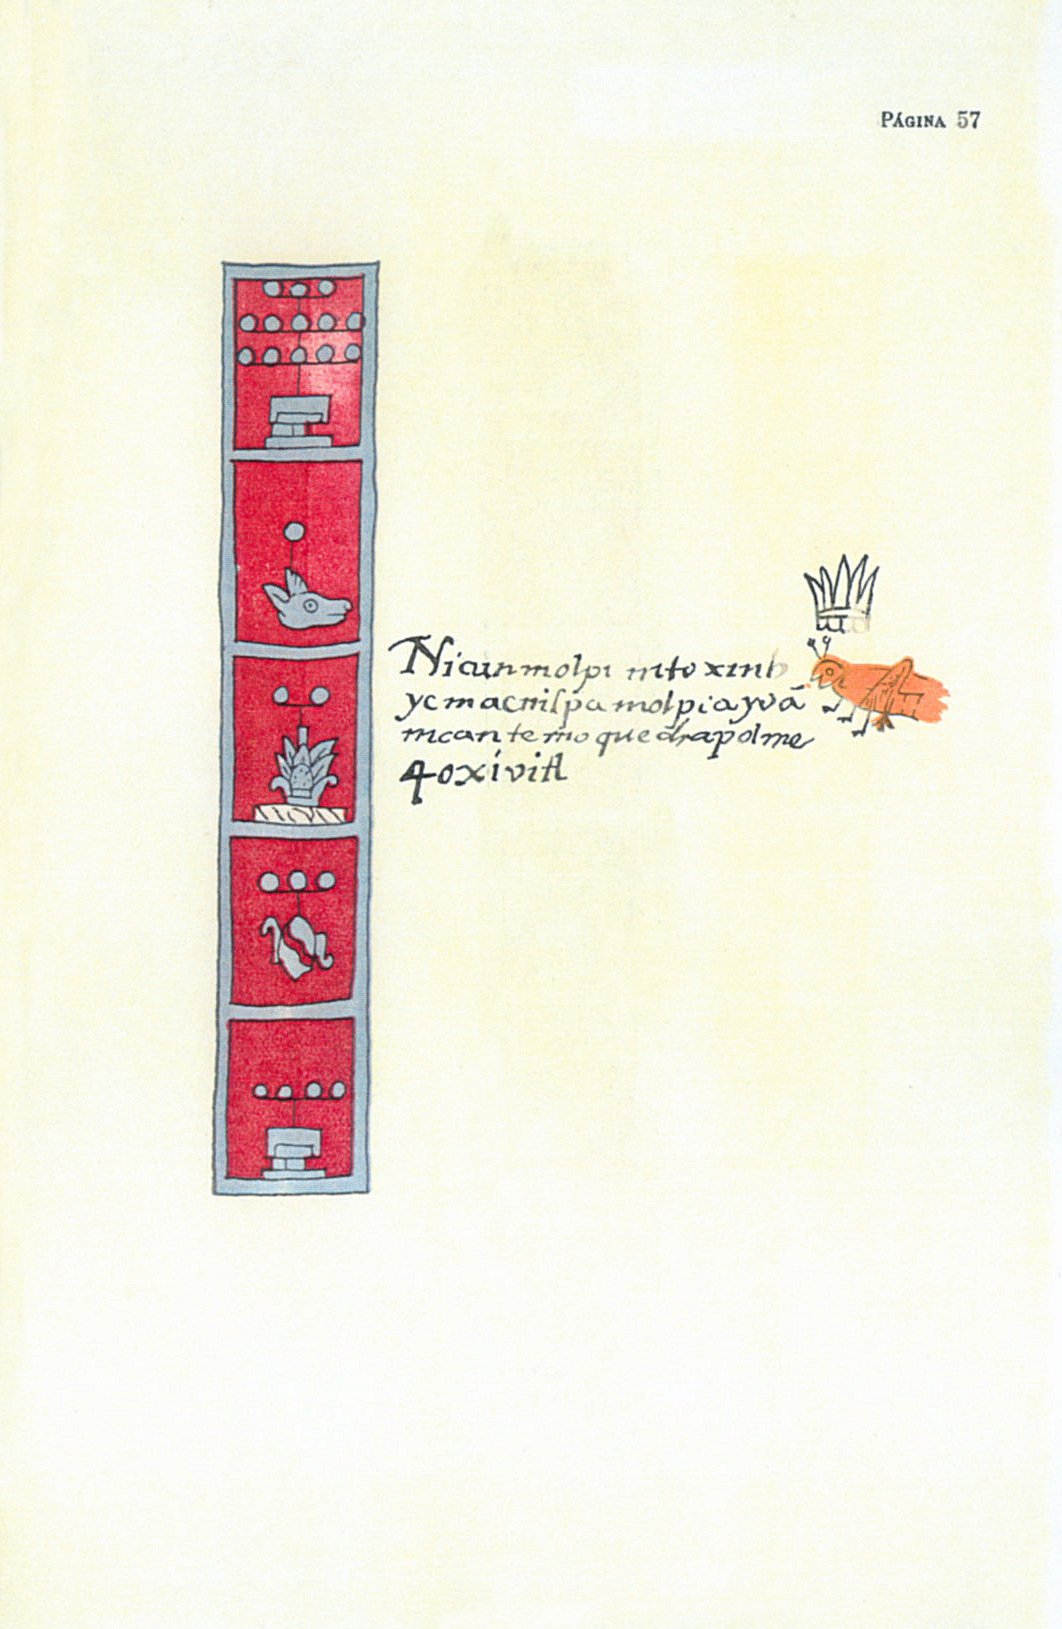 PÁGINA 57
Nican molpi in toxiuh
yc macuilpa molpia yvā
nican temoque chapolme
40 xivitl